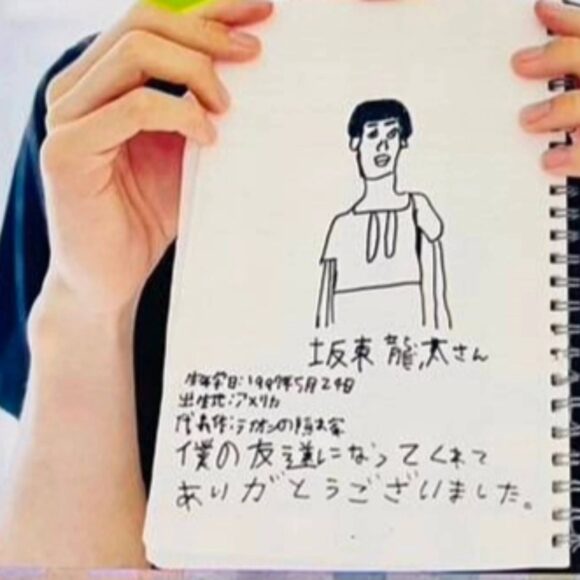 坂東龍汰さん
生年月日:1997年5月24日
出生地:アメリカ
代表作:ライオンの隠れ家
僕の友達になってくれて
ありがとうございました。